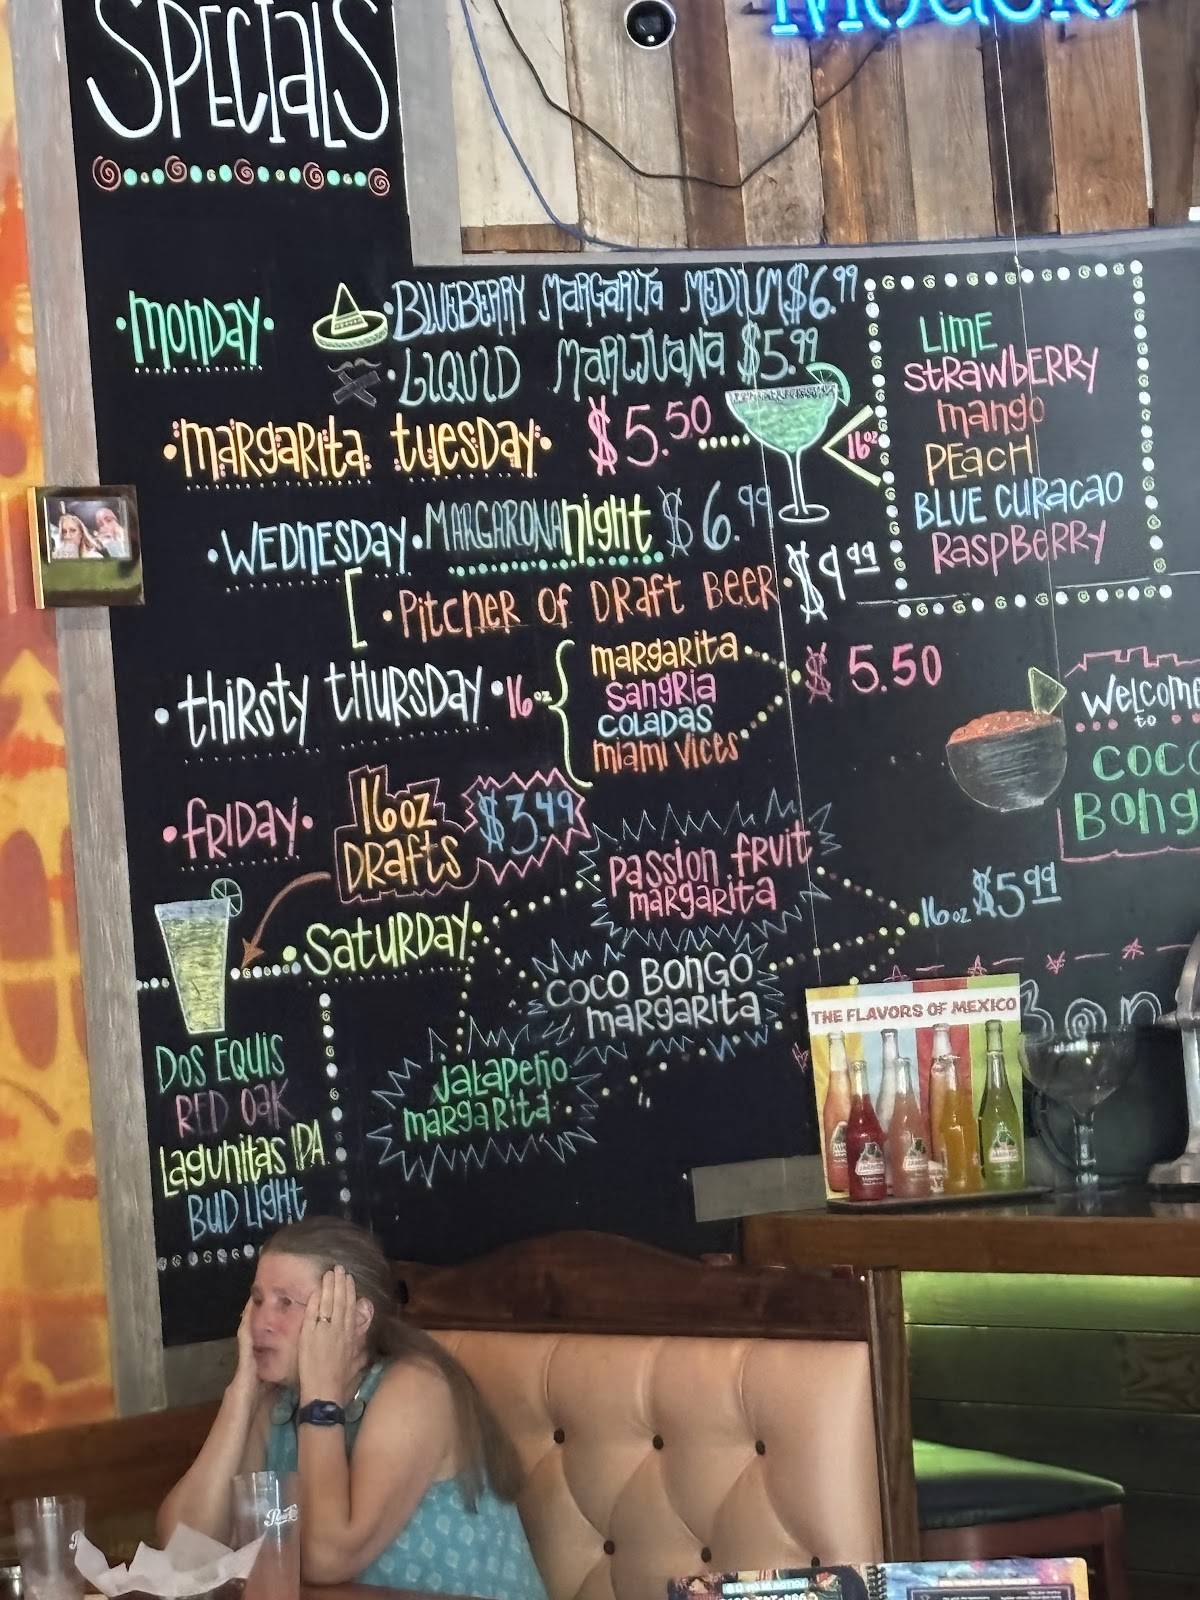 SPECIALS
MONDAY
BLUEBERRY MARGARITA MEDIUM $6.99
LIQUID MARIJUANA $5.99
MARGARITA TUESDAY $5.50
16oz
LIME
STRAWBERRY
MANGO
PEACH
BLUE CURACAO
RASPBERRY
WEDNESDAY MARGARONA NIGHT $6.99
PITCHER OF DRAFT BEER $9.99
THIRSTY THURSDAY 16oz
MARGARITA
SANGRIA
COLADAS
MIAMI VICES
$5.50
WELCOME
TO
COCO
BONG
FRIDAY
16oz
DRAFTS
$3.49
SATURDAY
PASSION FRUIT
MARGARITA
COCO BONGO
MARGARITA
JALAPEÑO
MARGARITA
16oz $5.99
DOS EQUIS
RED OAK
LAGUNITAS IPA
BUD LIGHT
THE FLAVORS OF MEXICO